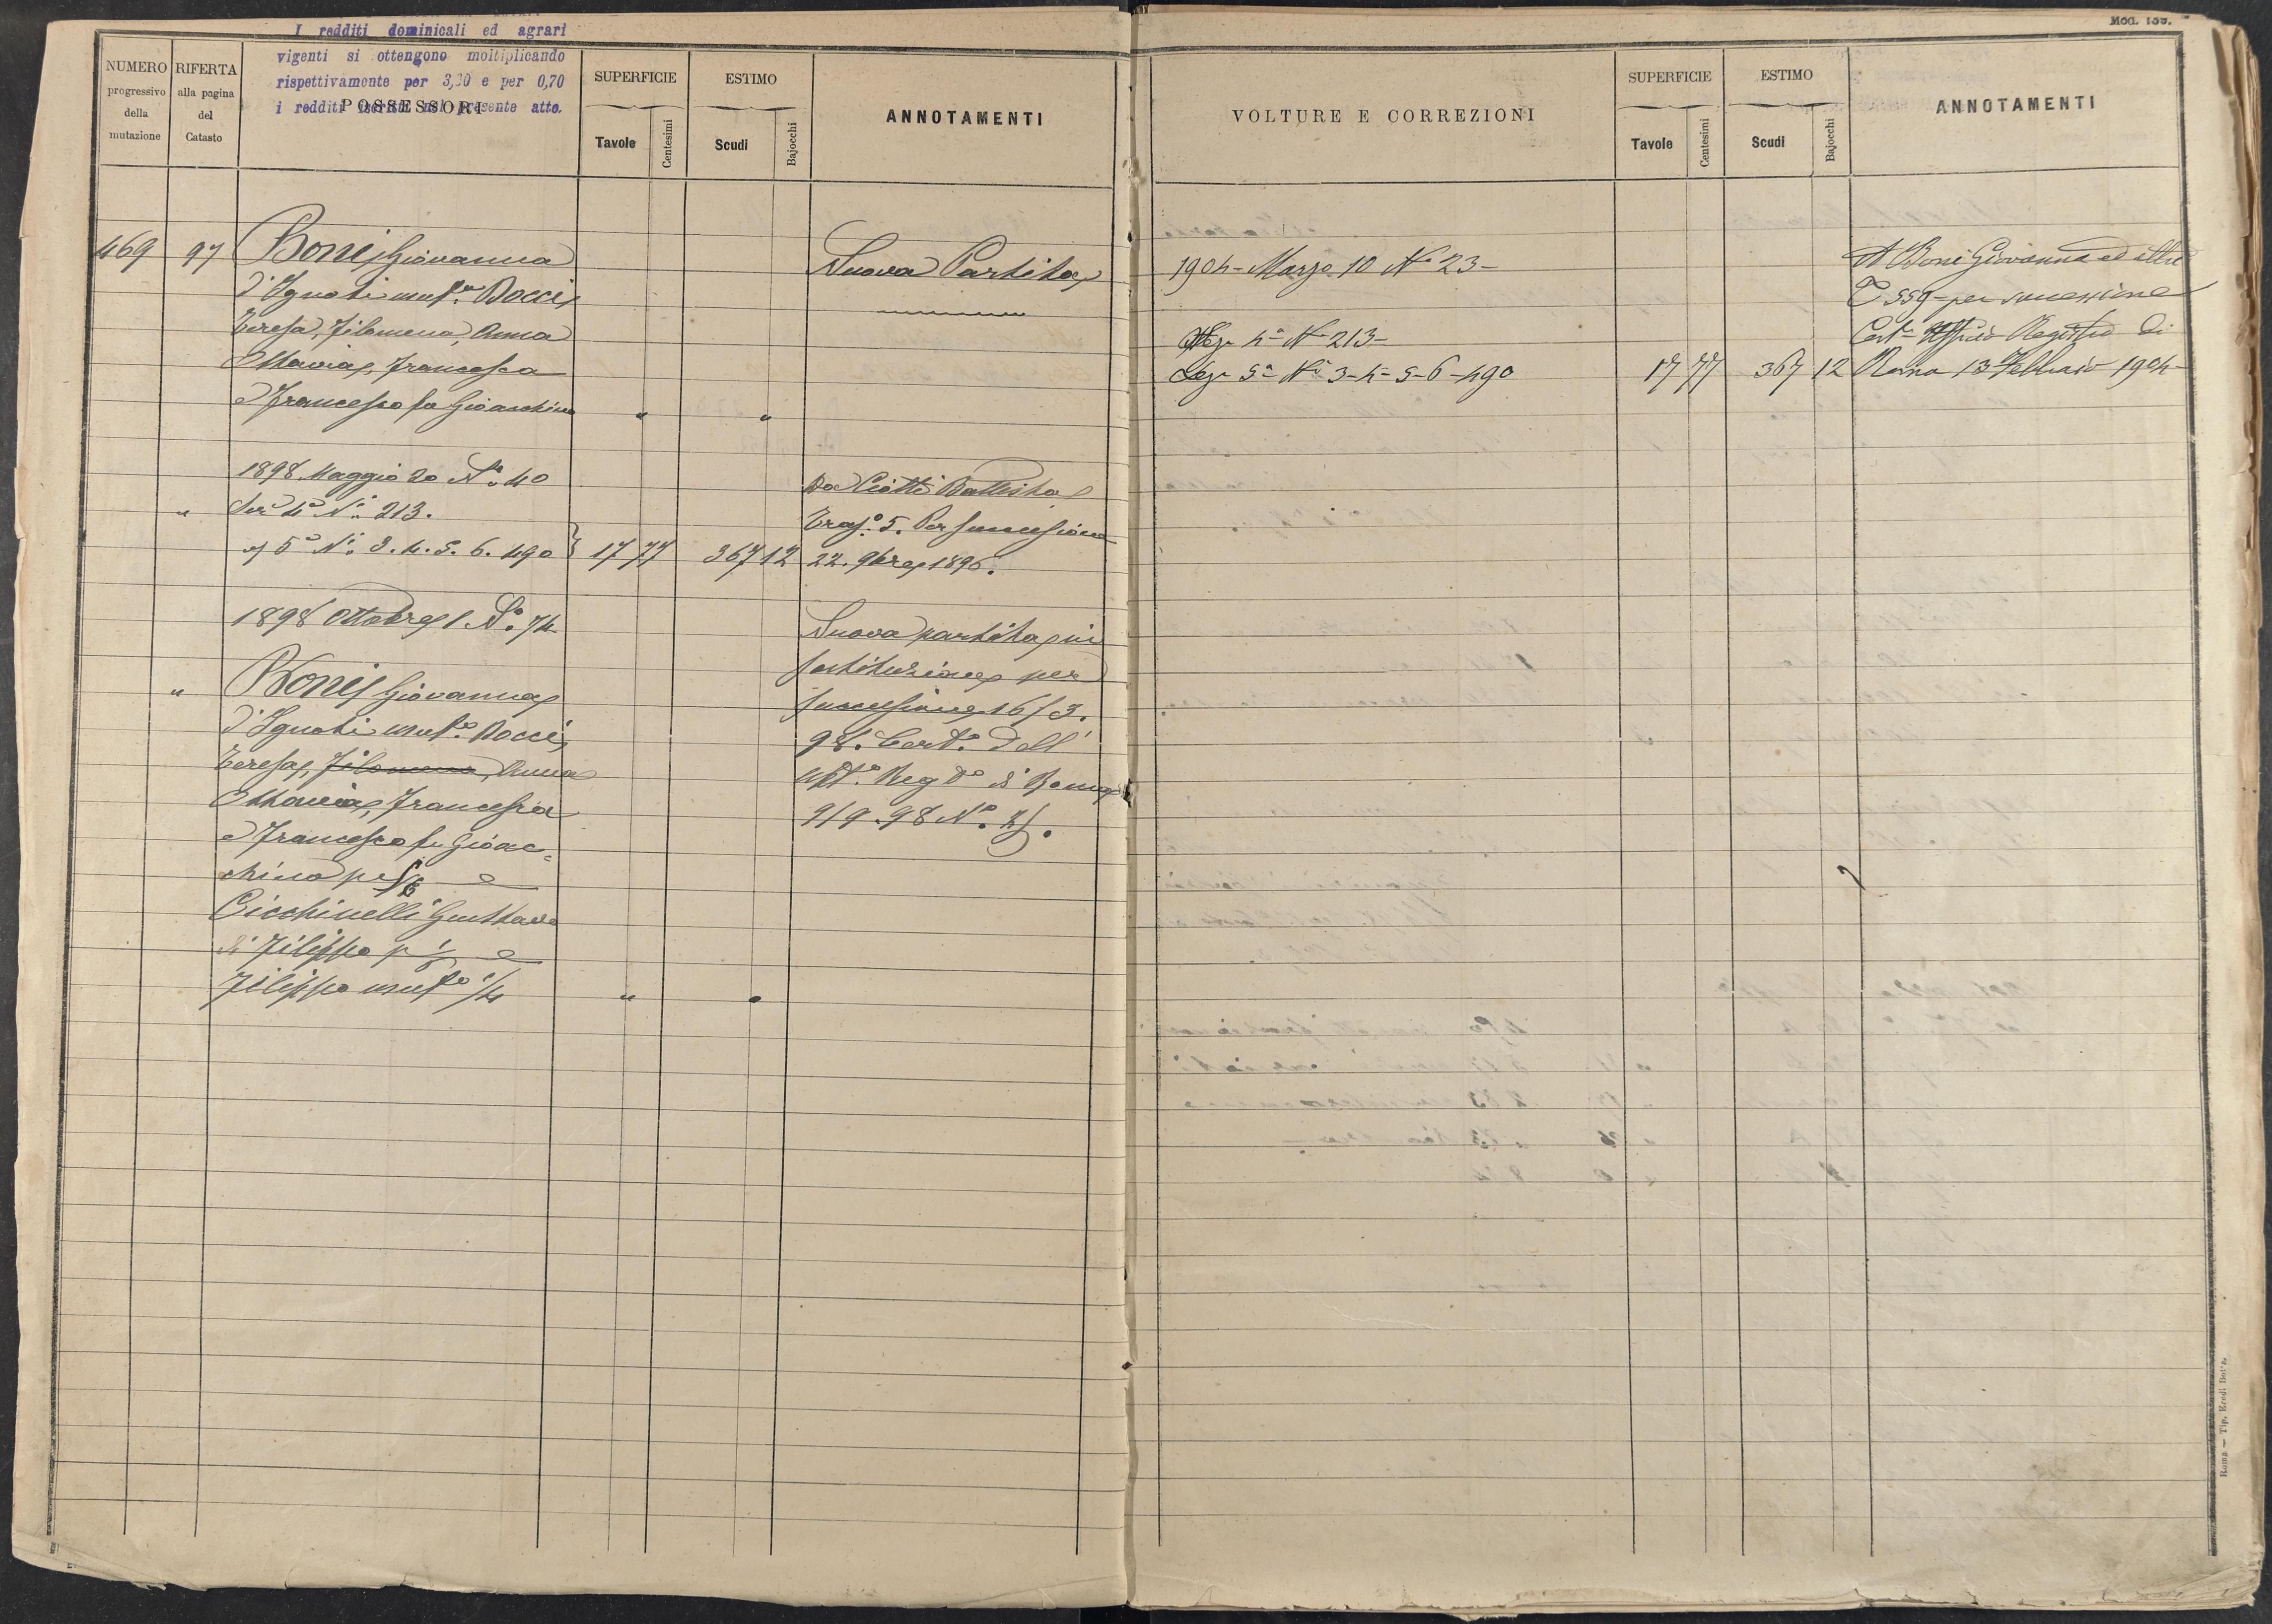 Mod. 139.
I redditi dominicali ed agrari
vigenti si ottengono moltiplicando
rispettivamente per 3,30 e per 0,70
i redditi nel presente atto.
NUMERO progressivo della mutazione
RIFERTA alla pagina del Catasto
POSSESSORI
SUPERFICIE
Tavole
Centesimi
ESTIMO
Scudi
Bajocchi
ANNOTAMENTI
VOLTURE E CORREZIONI
SUPERFICIE
Tavole
Centesimi
ESTIMO
Scudi
Bajocchi
ANNOTAMENTI
469 97 Boni Giovanna
d'Ignoti Bocci
Teresa, Filomena, Anna
Ottavia, Francesca
e Francesco fu Gioacchino " "
Nuova Partita
1898 Maggio 20 N.° 40
" Sez 4ª N.° 213.
5ª N.i 3. 4. 5. 6. 490 } 17 77 367 12
Da Ciotti Battista
Trasp.° 5. Per successione
22. 9bre 1896.
1898 Ottobre 1. N.° 74
" Boni Giovanna
d'Ignoti usuf.° Bocci
Teresa, Filomena, Anna
Ottavia, Francesca
e Francesco fu Gioac-
chino per 5/6 e
Cicchinelli Gustavo
di Filippo p 1/6 e
Filippo usuf.° 1/4 " "
Nuova partita in
sostituzione per
successione 16/3.
98. Cert.° dell'
Reg.° di
9/9.98 N.°
1904 - Marzo 10 N° 23 -
Sez 4ª N° 213 -
Sez 5ª N.i 3 - 4 - 5 - 6 - 490 17 77 367 12
A Boni Giovanna ed altri
T 559 - per successione
Cert° Ufficio Registro di
Roma 13 Febbraio 1904 -
Roma — Tip. Eredi Botta.